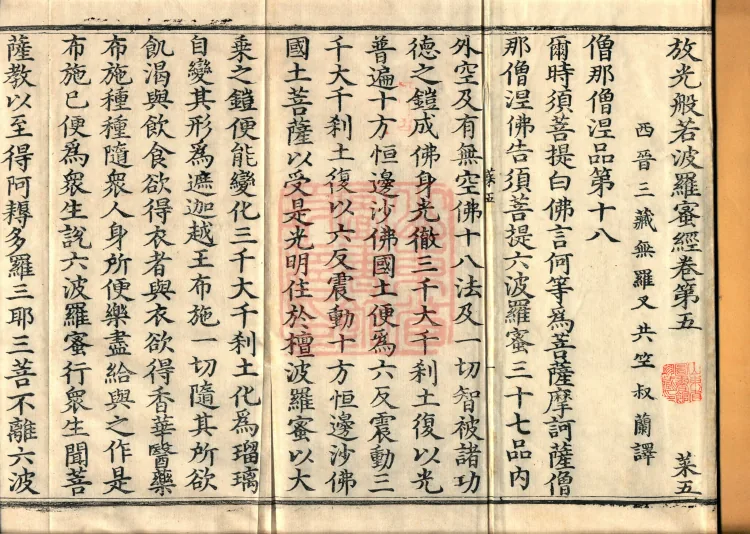 放光般若波羅蜜經卷第五 菜五
西晉三藏無羅叉共竺叔蘭譯
僧那僧涅品第十八
爾時須菩提白佛言何等爲菩薩摩訶薩僧
那僧涅佛告須菩提六波羅蜜三十七品內
菜五
外空及有無空佛十八法及一切智被諸功
德之鎧成佛身光徹三千大千刹土復以光
普遍十方恒邊沙佛國土便爲六反震動三
千大千刹土復以六反震動十方恒邊沙佛
國土菩薩以受是光明住於檀波羅蜜以大
乘之鎧便能變化三千大千刹土化爲瑠璃
自變其形爲遮迦越王布施一切隨其所欲
飢渴與飲食欲得衣者與衣欲得香華醫藥
布施種種隨衆人身所便樂盡給與之作是
布施已便爲衆生說六波羅蜜行衆生聞菩
薩教以至得阿耨多羅三耶三菩不離六波